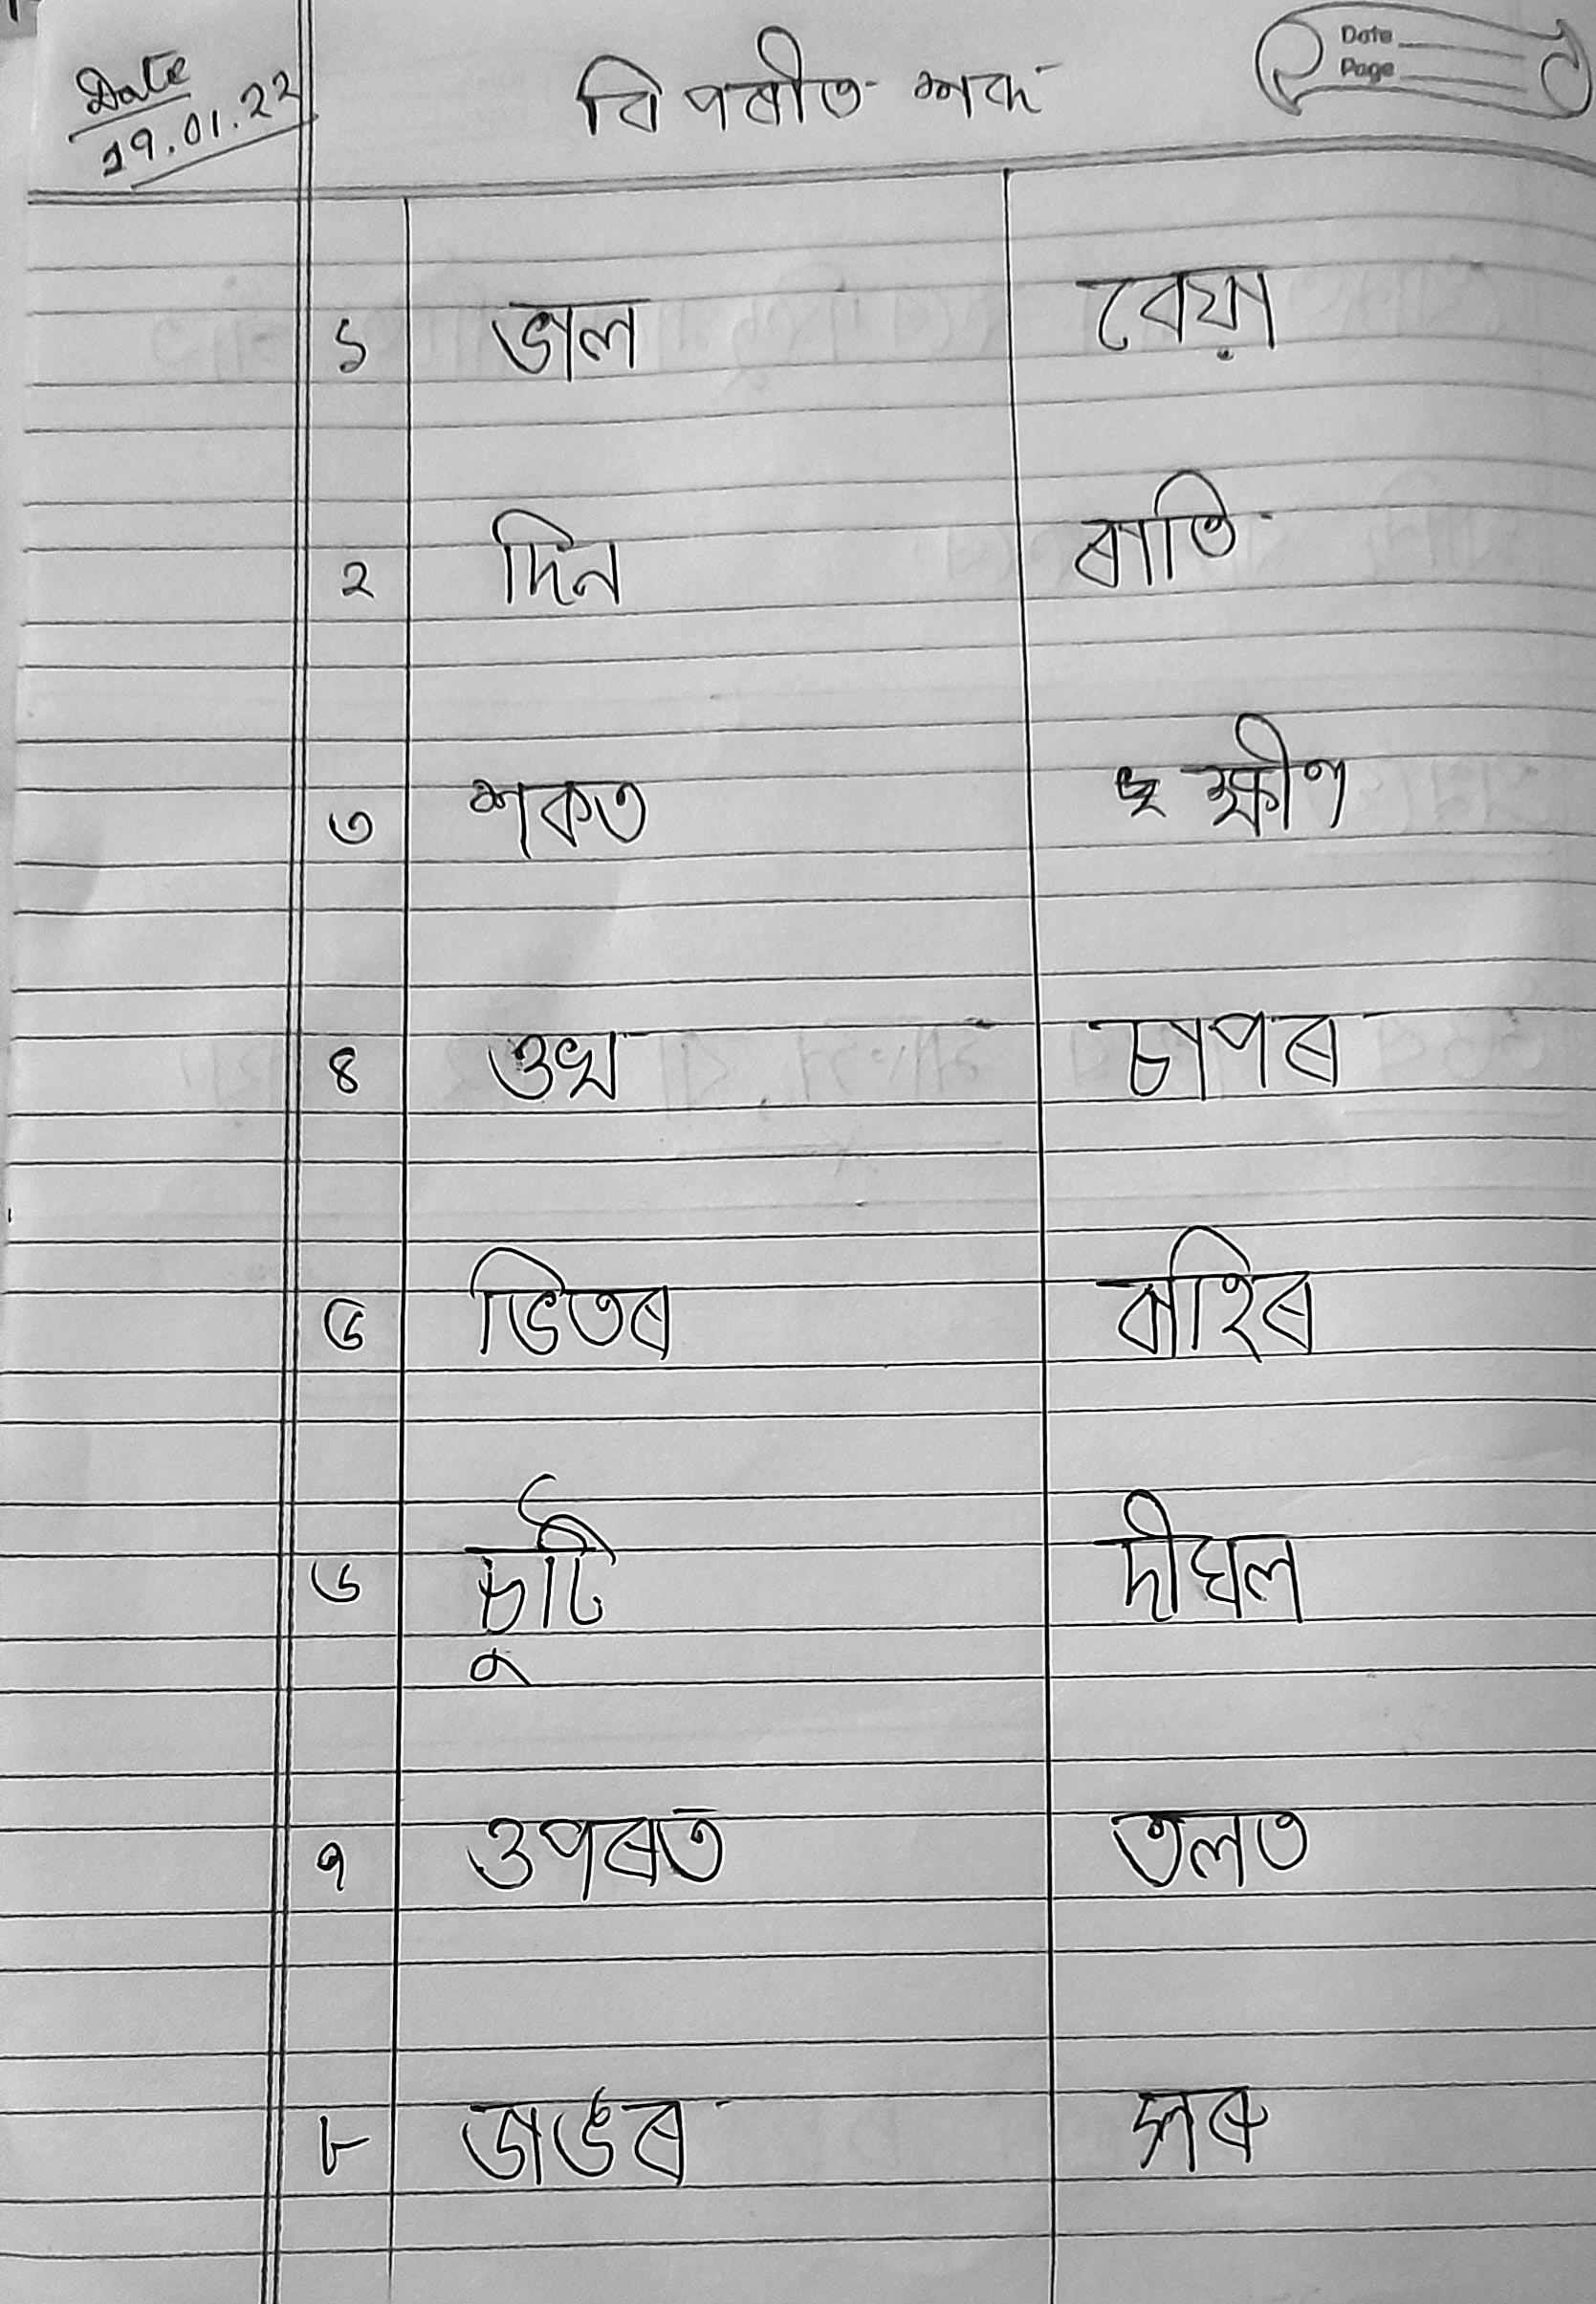 Date
19.01.22
বিপৰীত শব্দ
Date
Page
১ ভাল বেয়া
২ দিন ৰাতি
৩ শকত ক্ষীণ
৪ ওখ চাপৰ
৫ ভিতৰ বাহিৰ
৬ চুটি দীঘল
৭ ওপৰত তলত
৮ ডাঙৰ সৰু